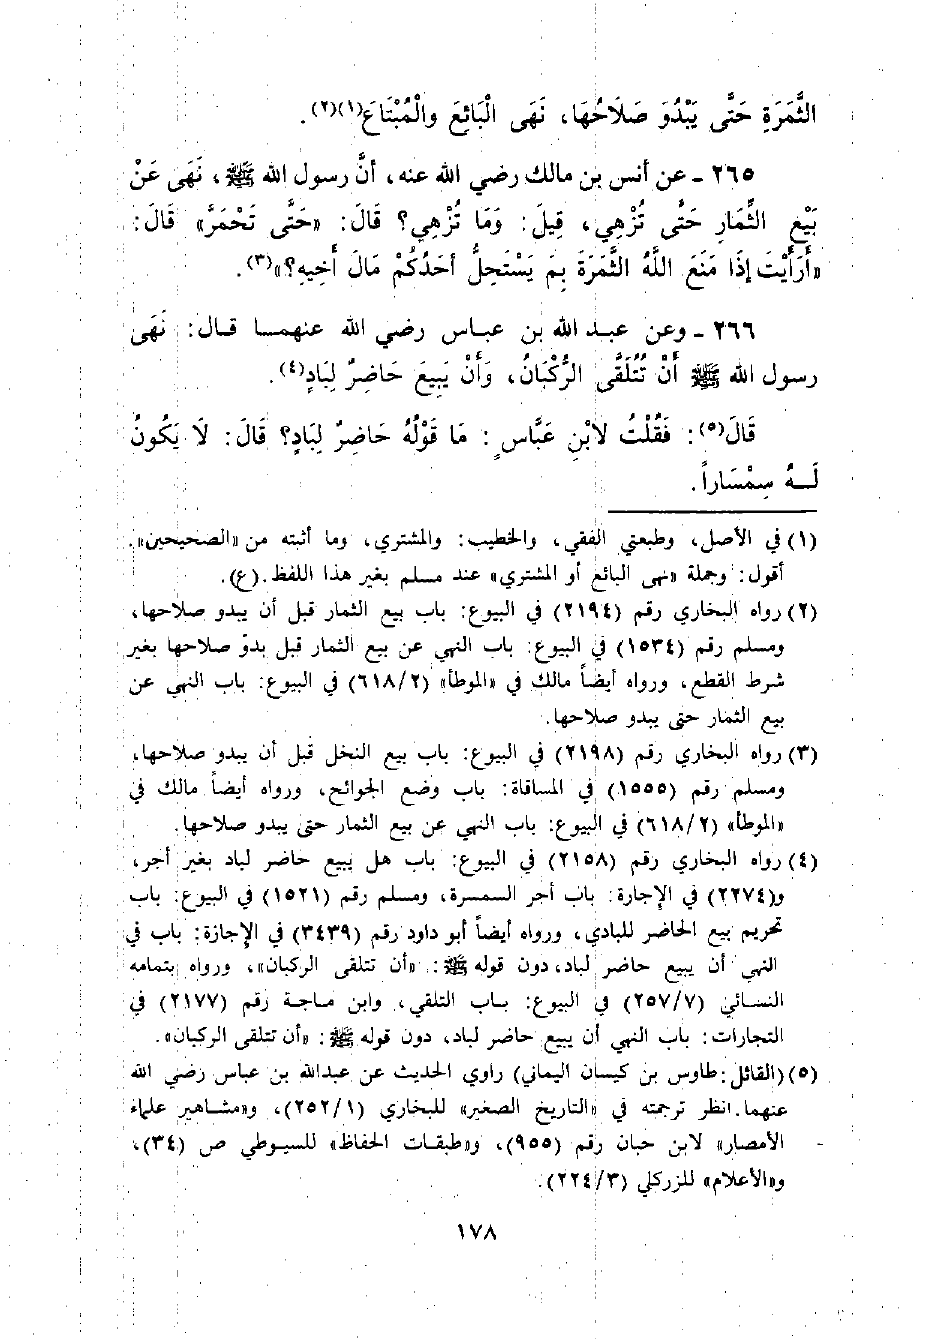 الثَّمَرَةِ حَتَّى يَبْدُوَ صَلَاحُهَا، نَهَى الْبَائِعَ والْمُبْتَاعَ(١)(٢).
٢٦٥ ـ عن أنس بن مالك رضي الله عنه، أنَّ رسول الله ﷺ، نَهَى عَنْ
بَيْعِ الثِّمَارِ حَتَّى تُزْهِي، قِيلَ: وَمَا تُزْهِي؟ قَالَ: «حَتَّى تَحْمَرَّ» قَالَ:
«أَرَأَيْتَ إِذَا مَنَعَ اللَّهُ الثَّمَرَةَ بِمَ يَسْتَحِلُّ أَحَدُكُمْ مَالَ أَخِيهِ؟»(٣).
٢٦٦ ـ وعن عبد الله بن عباس رضي الله عنهما قال: نَهَى
رسول الله ﷺ أَنْ تُتَلَقَّى الرُّكْبَانُ، وَأَنْ يَبِيعَ حَاضِرٌ لِبَادٍ(٤).
قَالَ(٥): فَقُلْتُ لِابْنِ عَبَّاسٍ: مَا قَوْلُهُ حَاضِرٌ لِبَادٍ؟ قَالَ: لَا يَكُونُ
لَهُ سِمْسَاراً.
(١) في الأصل، وطبعتي الفقي، والخطيب: والمشتري، وما أثبته من «الصحيحين».
أقول: وجملة «نهى البائع أو المشتري» عند مسلم بغير هذا اللفظ.(ع).
(٢) رواه البخاري رقم (٢١٩٤) في البيوع: باب بيع الثمار قبل أن يبدو صلاحها،
ومسلم رقم (١٥٣٤) في البيوع: باب النهي عن بيع الثمار قبل بدوّ صلاحها بغير
شرط القطع، ورواه أيضاً مالك في «الموطأ» (٦١٨/٢) في البيوع: باب النهي عن
بيع الثمار حتى يبدو صلاحها.
(٣) رواه البخاري رقم (٢١٩٨) في البيوع: باب بيع النخل قبل أن يبدو صلاحها،
ومسلم رقم (١٥٥٥) في المساقاة: باب وضع الجوائح، ورواه أيضاً مالك في
«الموطأ» (٦١٨/٢) في البيوع: باب النهي عن بيع الثمار حتى يبدو صلاحها.
(٤) رواه البخاري رقم (٢١٥٨) في البيوع: باب هل يبيع حاضر لباد بغير أجر،
و(٢٢٧٤) في الإجارة: باب أجر السمسرة، ومسلم رقم (١٥٢١) في البيوع: باب
تحريم بيع الحاضر للبادي، ورواه أيضاً أبو داود رقم (٣٤٣٩) في الإجازة: باب في
النهي أن يبيع حاضر لباد، دون قوله ﷺ: «أن تتلقى الركبان»، ورواه بتمامه
النسائي (٢٥٧/٧) في البيوع: باب التلقي، وابن ماجة رقم (٢١٧٧) في
التجارات: باب النهي أن يبيع حاضر لباد، دون قوله ﷺ: «أن تتلقى الركبان».
(٥) (القائل: طاوس بن كيسان اليماني) راوي الحديث عن عبدالله بن عباس رضي الله
عنهما. انظر ترجمته في «التاريخ الصغير» للبخاري (٢٥٢/١)، و«مشاهير علماء
الأمصار» لابن حبان رقم (٩٥٥)، و«طبقات الحفاظ» للسيوطي ص (٣٤)،
و«الأعلام» للزركلي (٢٢٤/٣).
١٧٨